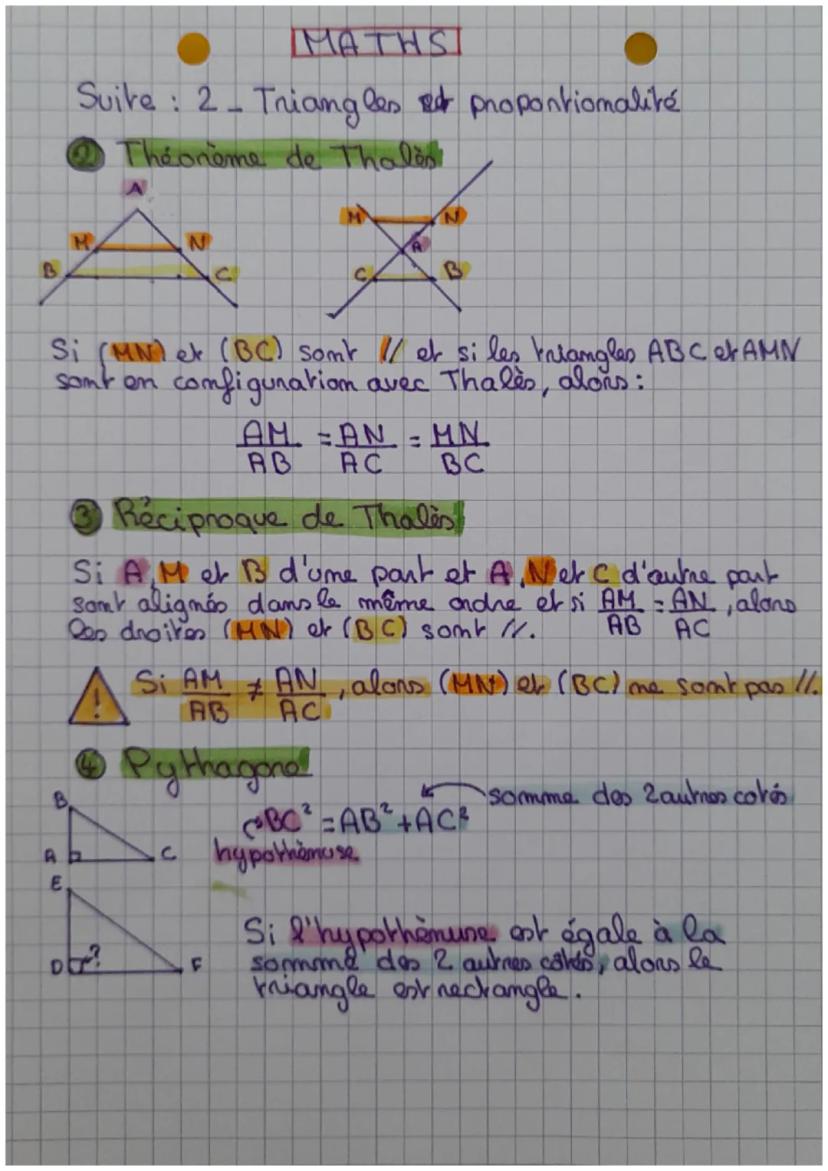 MATHS
Suite : 2 - Triangles et proportionnalité
② Théorème de Thalès
A
M N
B C
M N
A
C B
Si (MN) et (BC) sont // et si les triangles ABC et AMN
sont en configuration avec Thalès, alors :
AM/AB = AN/AC = MN/BC
③ Réciproque de Thalès
Si A, M et B d'une part et A, N et C d'autre part
sont alignés dans le même ordre et si AM/AB = AN/AC, alors
les droites (MN) et (BC) sont //.
! Si AM/AB ≠ AN/AC, alors (MN) et (BC) ne sont pas //.
④ Pythagore
B
A C
BC² = AB² + AC²
somme des 2 autres cotés
hypothénuse
E
D ? F
Si l'hypothénuse est égale à la
somme des 2 autres côtés, alors le
triangle est rectangle.